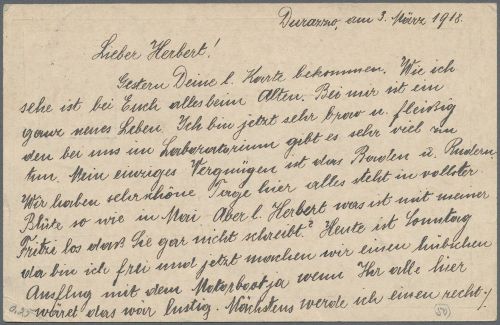 Durazzo, am 3. März 1918.
Lieber Herbert!
Gestern Deine l. Karte bekommen. Wie ich
sehe ist bei Euch alles beim Alten. Bei mir ist ein
ganz neues Leben. Ich bin jetzt sehr brav u. fleißig
den bei uns im Laboratorium gibt es sehr viel zu
tun. Mein einziges Vergnügen ist das Baden u. Rudern
Wir haben sehr schöne Tage hier alles steht in vollster
Blüte so wie in Mai Aber l. Herbert was ist mit meiner
Fritzi los daß Sie gar nicht schreibt? Heute ist Sonntag
da bin ich frei und jetzt machen wir einen hübschen
Ausflug mit dem Motorboot ja wenn Ihr alle hier
wäret das wär lustig. Nächstens werde ich einen recht ./.
0.25
50